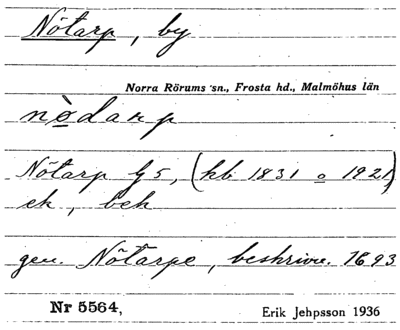 Nötarp, by
Norra Rörums sn., Frosta hd., Malmöhus län
nø̀darp
Nötarp G5, (hb 1831 o 1921)
ek, bek
gen. Nötarpe, beskrivn. 1693
Nr 5564,
Erik Jehpsson 1936